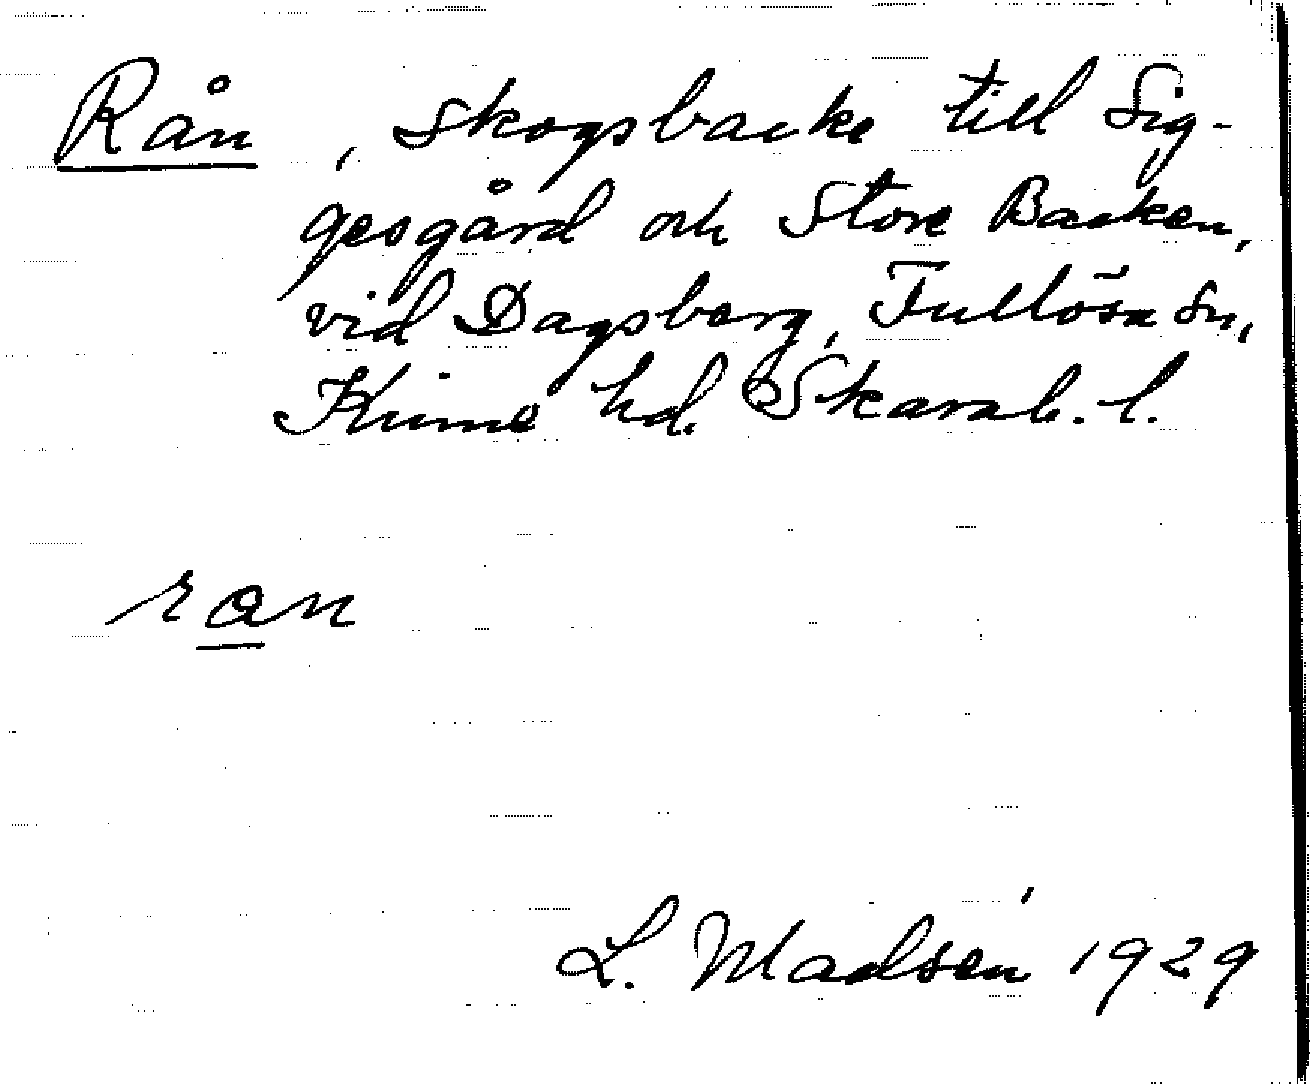 Rån, skogsbacke till Sig-
gesgård och Store Backen,
vid Dagsberg, Fullösa sn,
Kinne hd. Skarab. l.
ran
L. Madsén 1929